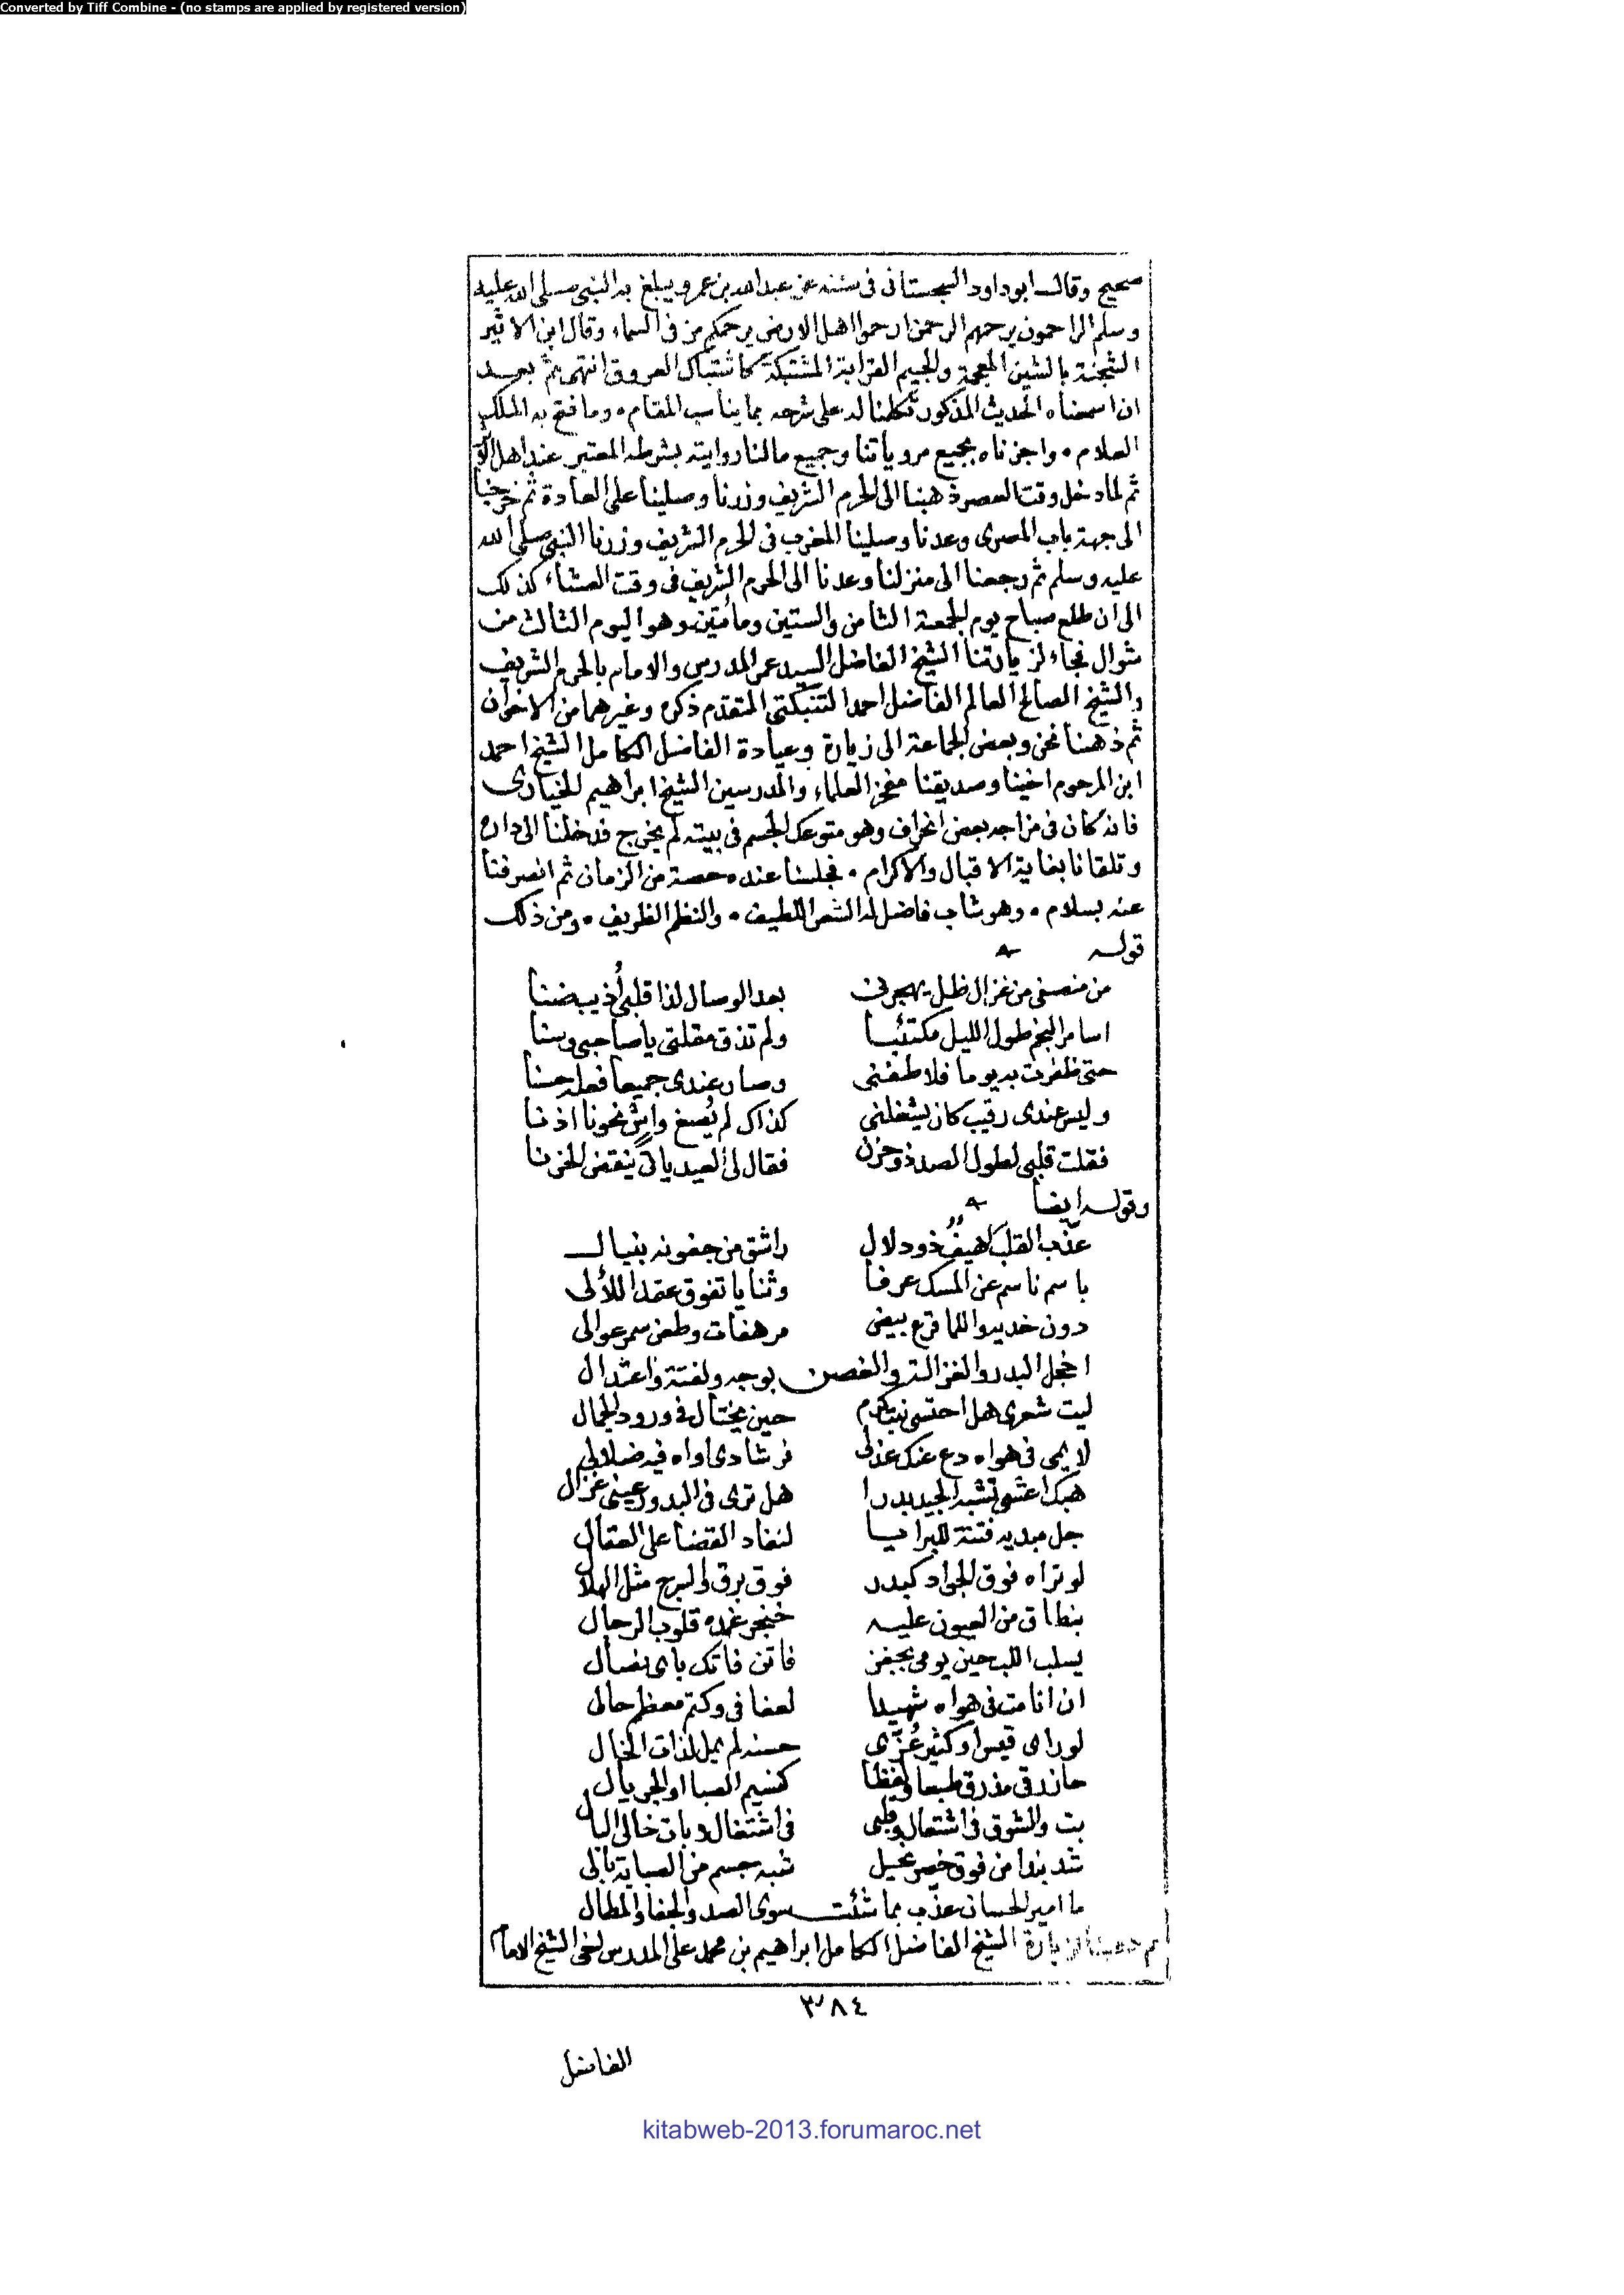 Converted by Tiff Combine - (no stamps are applied by registered version)
صحيح وقال ابوداود السجستانى فى سننه عن عبد الله بن عمرو يبلغ به النبى صلى الله عليه
وسلم الراحمون يرحمهم الرحمن ارحموا اهل الارض يرحمكم من فى السماء وقال ابن الاثير
الشجنة بالشين المعجمة والجيم القرابة المشتبكة كاشتباك العروق انتهى ثم بعد
ان اسمعناه الحديث المذكور تكلمنا له على شرحه بما يناسب المقام • وما فتح به الملك
العلام • واجزناه بجميع مروياتنا وجميع مالنا روايته بشرطه المعتبر عند اهل
ثم لما دخل وقت العصر ذهبنا الى الحرم الشريف وزرنا وصلينا على العادة ثم خرجنا
الى جهة باب المصرى وعدنا وصلينا المغرب فى الحرم الشريف وزرنا النبى صلى الله
عليه وسلم ثم رجعنا الى منزلنا وعدنا الى الحرم الشريف فى وقت العشاء كذلك
الى ان طلع صباح يوم الجمعة الثامن والستين ومأتين وهو اليوم الثالث من
شوال فجاء لزيارتنا الشيخ الفاضل السيد عمر المدرس والامام بالحرم الشريف
والشيخ الصالح العالم الفاضل احمد التنبكتى المتقدم ذكره وغيرهما من الاخوان
ثم ذهبنا نحن وبعض الجماعة الى زيارة وعيادة الفاضل الكامل الشيخ احمد
ابن المرحوم اخينا وصديقنا مفخر العلماء والمدرسين الشيخ ابراهيم الخيارى
فانه كان فى مزاجه بعض انحراف وهو متوعك الجسم فى بيته لم يخرج فدخلنا الى داره
وتلقانا بغاية الاقبال والاكرام • فجلسنا عنده حصة من الزمان ثم انصرفنا
عنه بسلام • وهو شاب فاضل له الشعر اللطيف • والنظم الظريف • ومن ذلك
قوله
من منصفى من غزال ظل يهجرنى بعد الوصال لذا قلبى أذيب ضنا
اسامر النجم طول الليل مكتئبا ولم تذق مقلتى يا صاحبى وسنا
حتى ظفرت به يوما فلاطفنى وصار عندى جميعا فعله حسنا
وليس عندى رقيب كان يشغلنى كذاك لم يُصغ واشٍ نحونا اذنا
فقلت قلبى لطول الصد ذو حزن فقال لى العيد ياتى ينقض الحزنا
وقوله ايضا
عذّب القلب اهيفٌ ذو دلال راشق من جفونه بنبال
باسم ناسم عن المسك عرفا وثنايا تفوق عقد اللألى
دون خديه واللما قرع بيض مرهفات وطعن سمر عوالى
اخجل البدر والغزالة والغصن بوجه ولفتة واعتدال
ليت شعرى هل احتسى حين يختال فى ورود الجمال
لايمى فى هواه دع عنك عذلى فرشادى اراه فيه ضلالى
هبك اعشى تشبه الجيد بدرا هل ترى فى البدور عينى غزال
جل مبديه فتنة للبرايا لنفاد القضا على العقال
لو تراه فوق الجواد كبدر فوق برق والسرج مثل الهلال
بنطاق من العيون عليه خنجر غمده قلوب الرجال
يسلب اللب حين يومى بجفن فاتن فاتك باى نصال
ان انا مت فى هواه شهيدا لعفافى وكتم معظم حالى
لو راى قيس او كثير عُزّى حسنه لم يمل لذات الخال
حاز رقى مذ رق طبعا ولفظا كنسيم الصبا او الجريال
بت والشوق فى اشتعال وقلبى فى اشتغال وبات خالى البال
شد بندا من فوق خصر نحيل شبه جسم من الصبابة بالى
يا امير الحسان عذّب بما شئت سوى الصد والجفا والمطال
ثم ذهبنا لزيارة الشيخ الفاضل الكامل ابراهيم بن محمد على المدرس الشيخ الامام
٣٨٤
الفاضل
kitabweb-2013.forumaroc.net